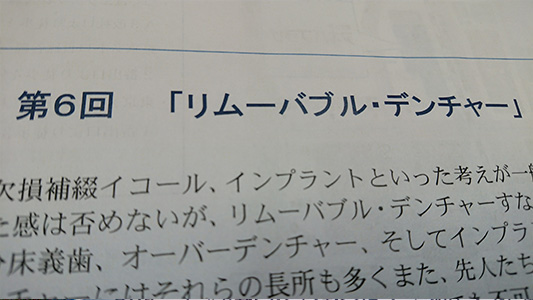 第6回 「リムーバブル・デンチャー」
欠損補綴イコール、インプラントといった考えが一
た感は否めないが、リムーバブル・デンチャーすな
床義歯、オーバーデンチャー、そしてインプラ
チャーにはそれらの長所も多くまた、先人たち